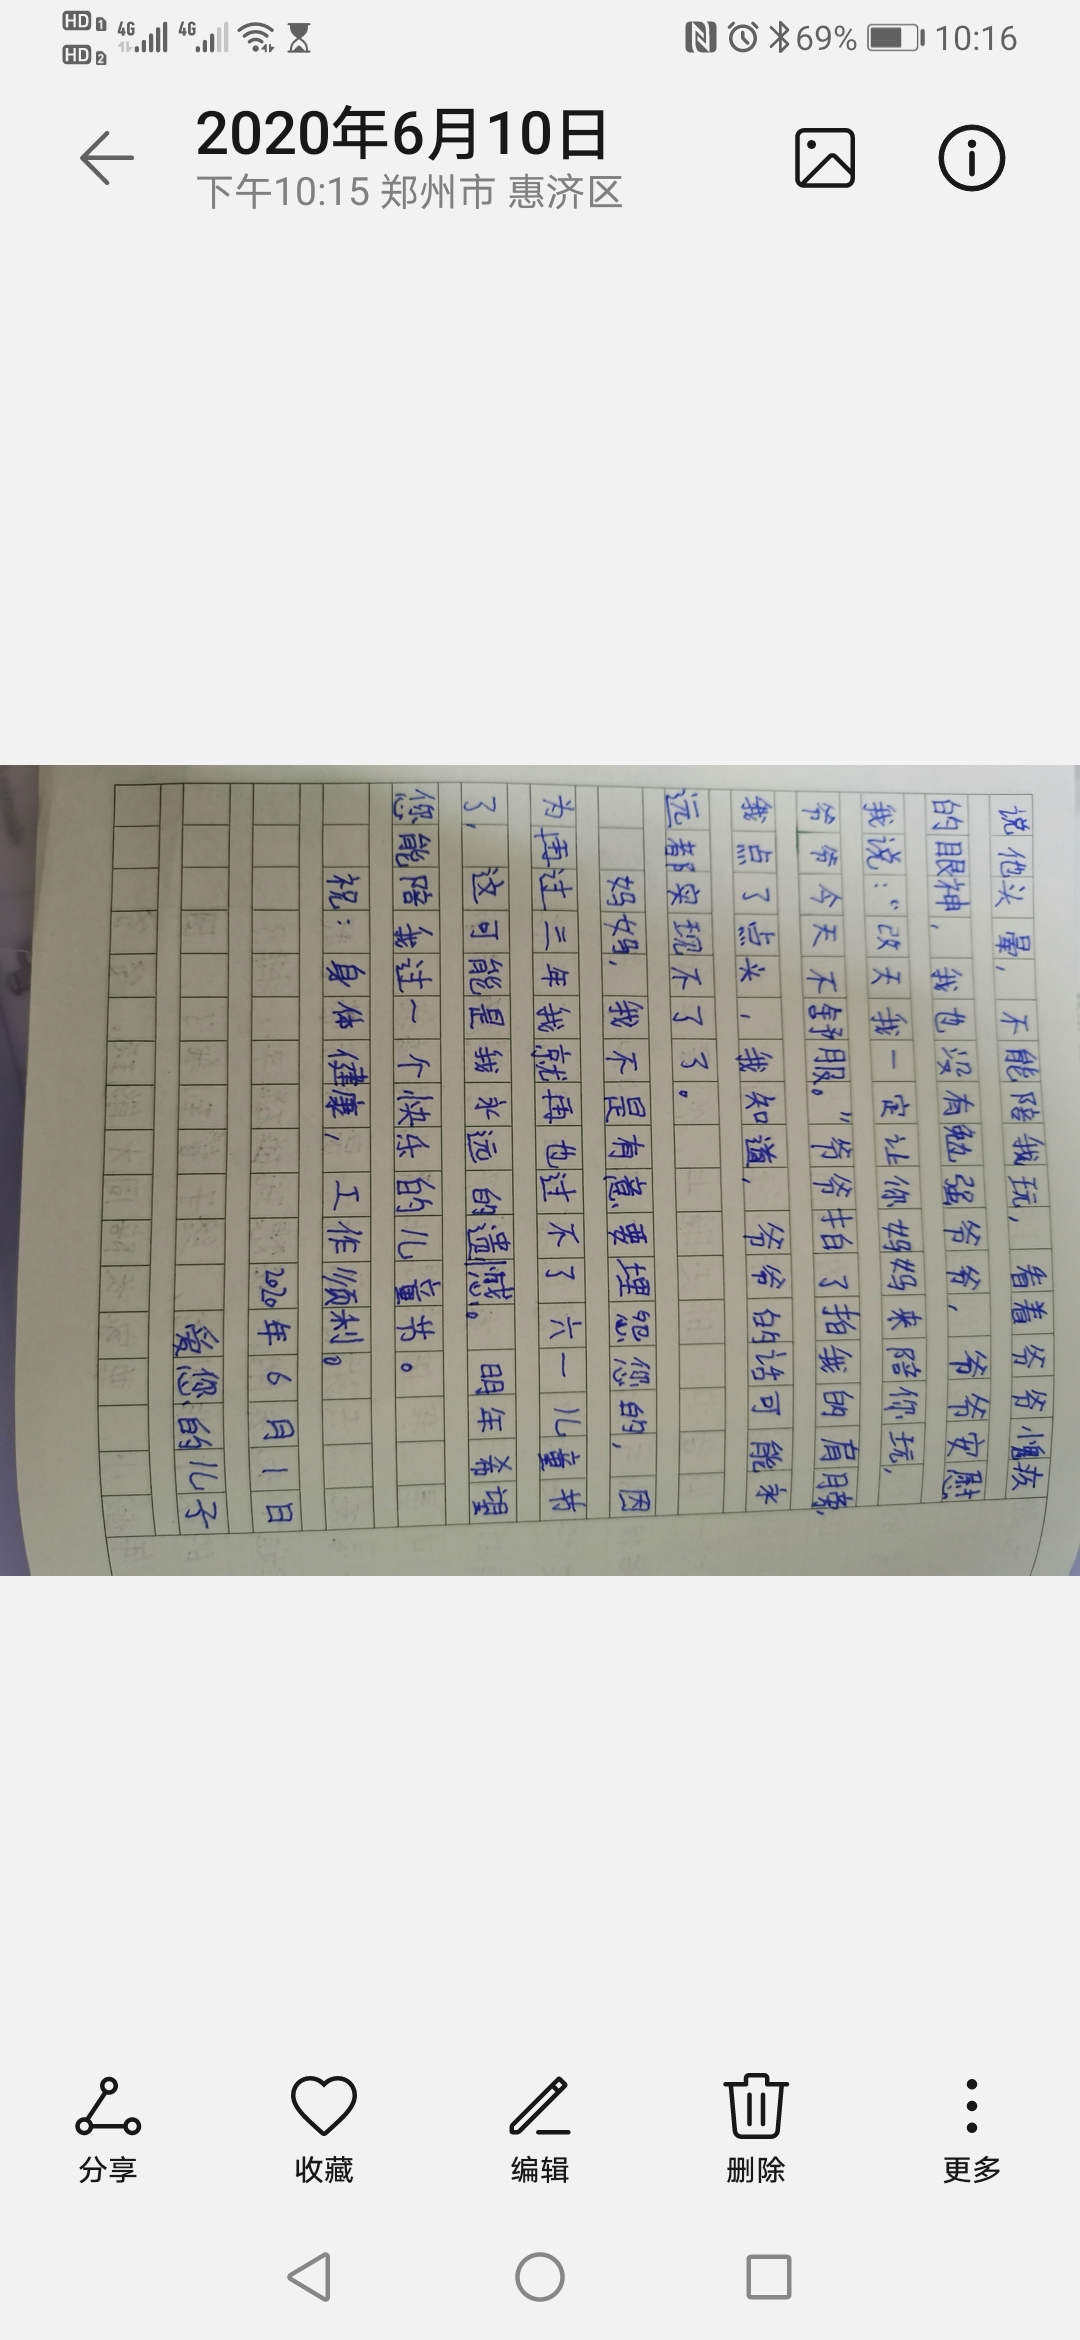 HD 1 4G 4G
HD 2
69% 10:16
2020年6月10日
下午10:15 郑州市 惠济区
说他头晕,不能陪我玩,看着爷爷愧疚
的眼神,我也没有勉强爷爷,爷爷安慰
我说:“改天我一定让你妈妈来陪你玩,
爷爷今天不舒服。”爷爷拍了拍我的肩膀,
我点了点头,我知道,爷爷的话可能永
远都实现不了了。
妈妈,我不是有意要埋怨您的,因
为再过三年我就再也过不了六一儿童节
了,这可能是我永远的遗憾。明年希望
您能陪我过一个快乐的儿童节。
祝:身体健康,工作顺利。
2020年6月1日
爱您的儿子
分享
收藏
编辑
删除
更多